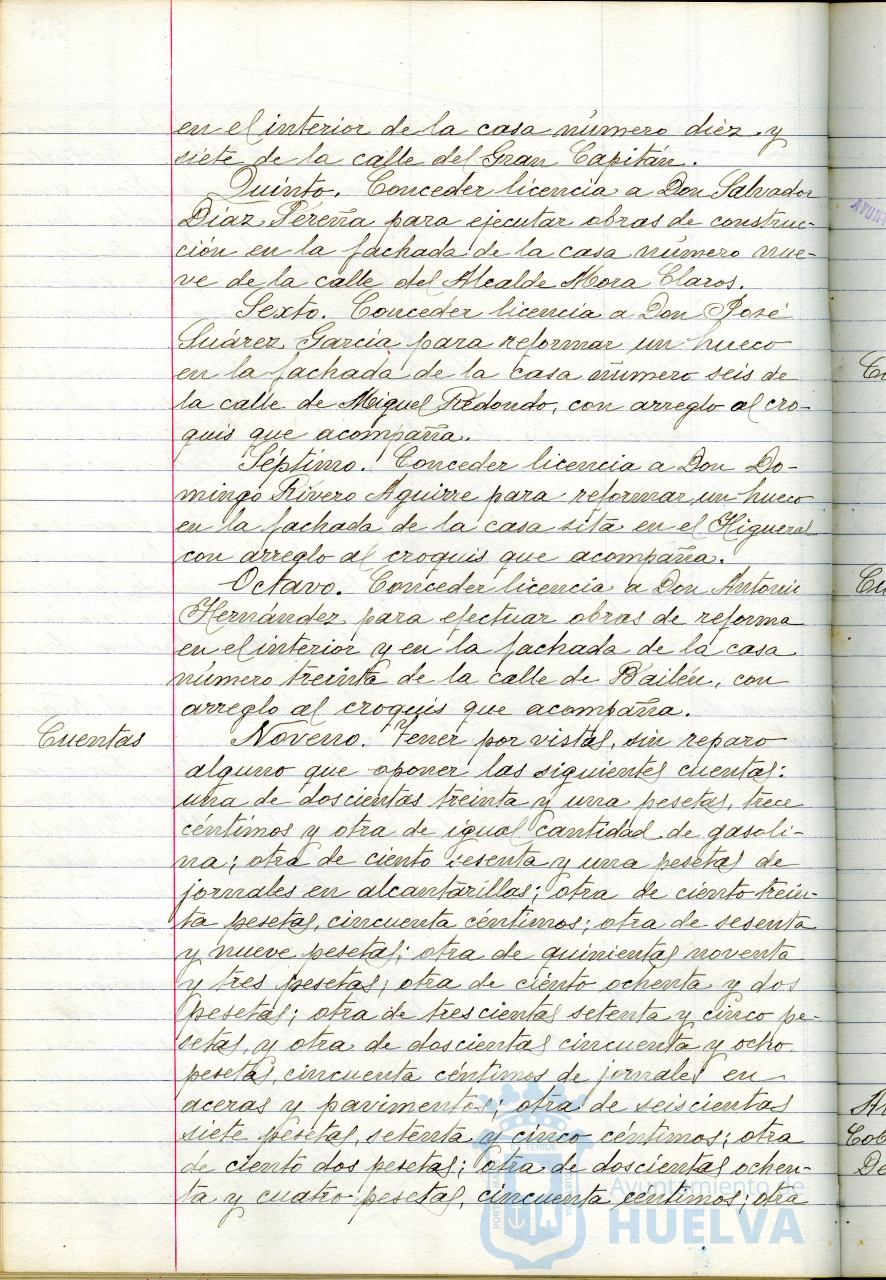 en el interior de la casa número diez y
siete de la calle del Gran Capitán.
Quinto. Conceder licencia a Don Salvador
Díaz Pereña para ejecutar obras de construc-
ción en la fachada de la casa número nue-
ve de la calle del Alcalde Mora Claros.
Sexto. Conceder licencia a Don José
Suárez García para reformar un hueco
en la fachada de la casa número seis de
la calle de Miguel Redondo, con arreglo al cro-
quis que acompaña.
Séptimo. Conceder licencia a Don Do-
mingo Rivero Aguirre para reformar un hueco
en la fachada de la casa sita en el Higueral
con arreglo al croquis que acompaña.
Octavo. Conceder licencia a Don Antonio
Hernández para efectuar obras de reforma
en el interior y en la fachada de la casa
número treinta de la calle de Bailén, con
arreglo al croquis que acompaña.
Cuentas
Noveno. Tener por vistas, sin reparo
alguno que oponer las siguientes cuentas:
una de doscientas treinta y una pesetas, trece
céntimos y otra de igual cantidad de gasoli-
na; otra de ciento sesenta y una pesetas de
jornales en alcantarillas; otra de ciento trein-
ta pesetas, cincuenta céntimos; otra de sesenta
y nueve pesetas; otra de quinientas noventa
y tres pesetas; otra de ciento ochenta y dos
pesetas; otra de trescientas setenta y cinco pe-
setas, y otra de doscientas cincuenta y ocho
pesetas, cincuenta céntimos de jornales en
aceras y pavimentos; otra de seiscientas
siete pesetas, setenta y cinco céntimos; otra
de ciento dos pesetas; otra de doscientas ochen-
ta y cuatro pesetas, cincuenta centimos; otra
Ayuntamiento de
HUELVA